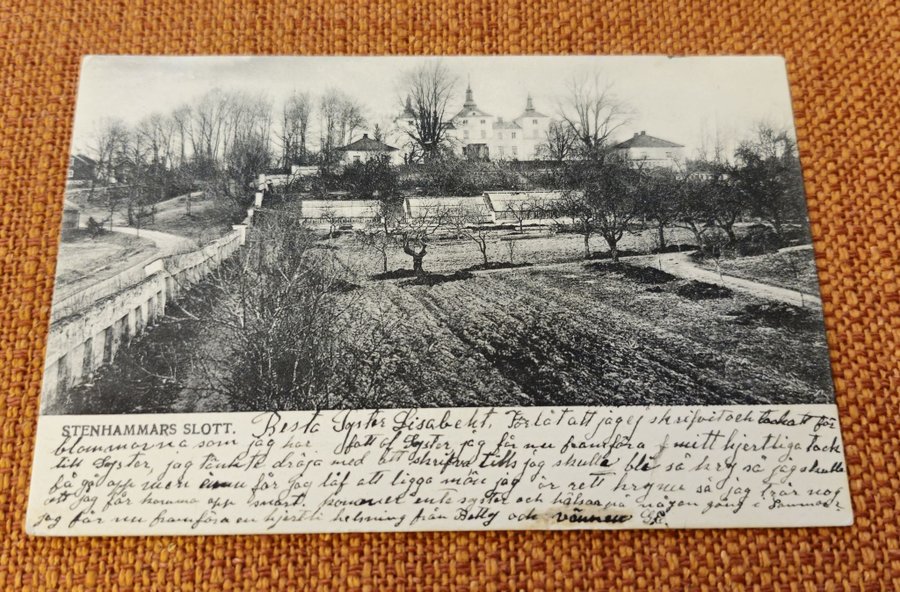 STENHAMMARS SLOTT. Bästa Syster Elisabeht. Förlåt att jag ej skrifvit och tackat för
blommorna som jag har fått af Syster, jag får nu framföra mitt hjertliga tack
till Syster, jag tänkte dröja med att skrifva tills jag skulle bli så kry så jag skulle
få gå opp men ännu får jag låf att ligga men jag är rett kry nu så jag tror nog
att jag får komma opp snart. kommer ente syster och hälsar på någon gång i Sommar
jag får nu framföra en hjertli helsning från Betty och vännen